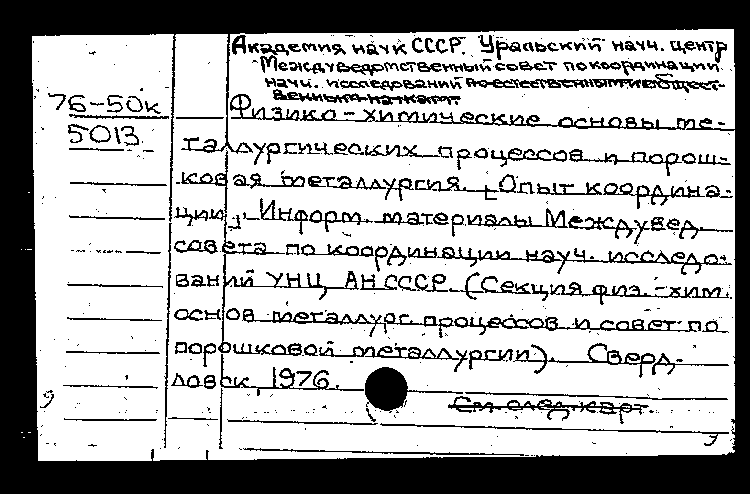 Академия наук СССР. Уральский науч. центр
Междуведомственный совет по координации
науч. исследований по естественным и общест-
венным наукам.
76-50к
Физико-химические основы ме-
5013
таллургических процессов и порош-
ковая металлургия. [Опыт координа-
ции]. Информ. материалы Междувед.
совета по координации науч. исследо-
ваний УНЦ АН СССР. (Секция физ.-хим.
основ металлург. процессов и совет по
порошковой металлургии). Сверд-
ловск, 1976.
См. след. карт.